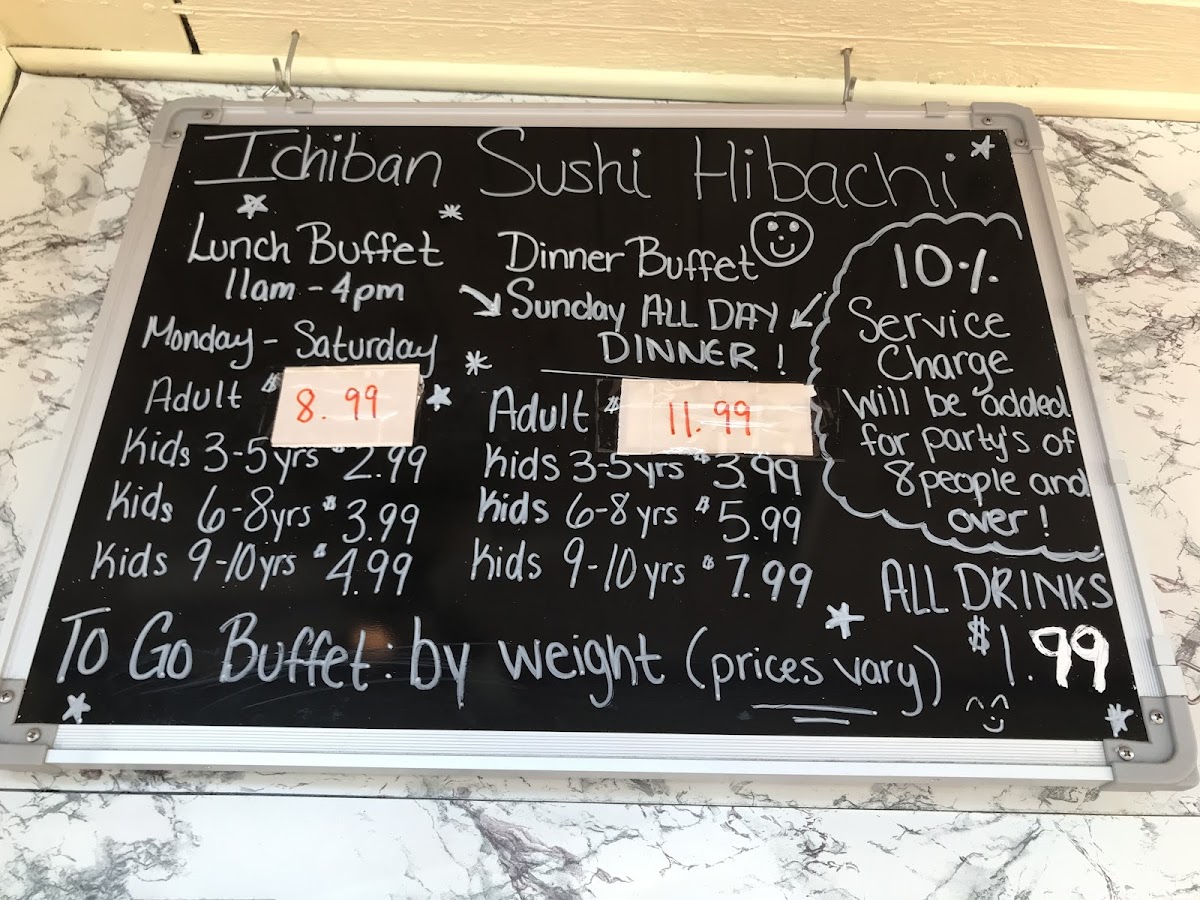 Ichiban Sushi Hibachi
Lunch Buffet
11am - 4pm
Monday - Saturday
Adult $ 8.99
Kids 3-5yrs $2.99
Kids 6-8yrs $3.99
Kids 9-10yrs $4.99
Dinner Buffet
Sunday ALL DAY
DINNER!
Adult $ 11.99
Kids 3-5yrs $3.99
Kids 6-8yrs $5.99
Kids 9-10yrs $7.99
10%
Service
Charge
will be added
for party's of
8 people and
over!
ALL DRINKS
$1.99
To Go Buffet: by weight (prices vary)